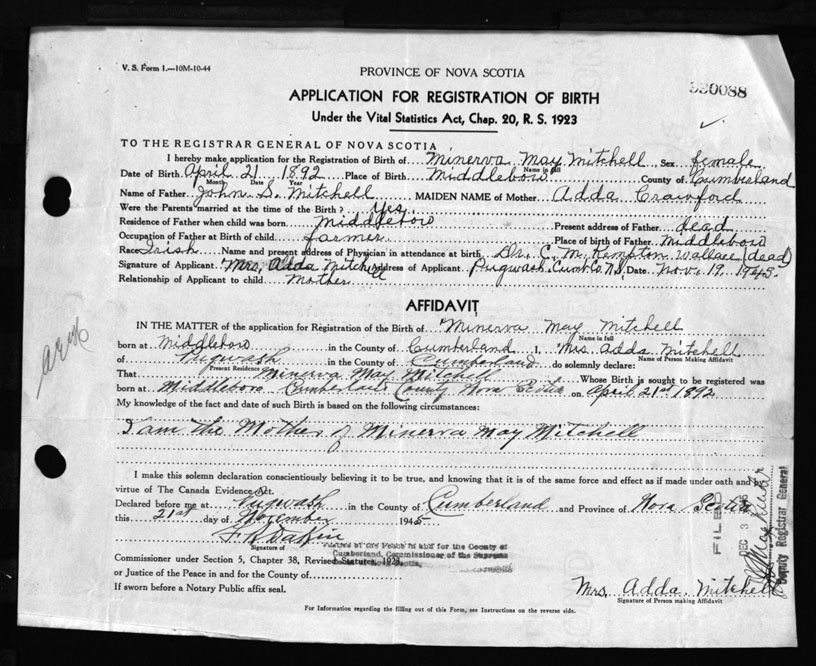 V. S. Form 1.—10M-10-44
PROVINCE OF NOVA SCOTIA
530088
APPLICATION FOR REGISTRATION OF BIRTH
Under the Vital Statistics Act, Chap. 20, R. S. 1923
TO THE REGISTRAR GENERAL OF NOVA SCOTIA
I hereby make application for the Registration of Birth of Minerva May Mitchell Sex female
Name in full
Date of Birth April 21 1892 Place of Birth Middleboro County of Cumberland
Month Date Year
Name of Father John S. Mitchell MAIDEN NAME of Mother Adda Crawford
Were the Parents married at the time of the Birth? yes
Residence of Father when child was born Middleboro Present address of Father dead
Occupation of Father at Birth of child farmer Place of birth of Father Middleboro
Race Irish Name and present address of Physician in attendance at birth Dr. C. M. Kempton Wallace (dead)
Signature of Applicant Mrs. Adda Mitchell Address of Applicant Pugwash Cumb. Co. N.S. Date Nov. 19, 1945
Relationship of Applicant to child Mother
AFFIDAVIT
IN THE MATTER of the application for Registration of the Birth of Minerva May Mitchell
Name in full
born at Middleboro in the County of Cumberland I, Mrs Adda Mitchell
Name of Person Making Affidavit
of Pugwash in the County of Cumberland do solemnly declare:
Present Residence
That Minerva May Mitchell Whose Birth is sought to be registered was
born at Middleboro Cumberland County Nova Scotia on April 21st 1892
My knowledge of the fact and date of such Birth is based on the following circumstances:
I am the Mother of Minerva May Mitchell
I make this solemn declaration conscientiously believing it to be true, and knowing that it is of the same force and effect as if made under oath and by
virtue of The Canada Evidence Act.
Declared before me at Pugwash in the County of Cumberland and Province of Nova Scotia
this 21st day of November 1945
Signature of
Justice of the Peace in and for the County of
Cumberland, Commissioner of the Supreme
Commissioner under Section 5, Chapter 38, Revised Statutes, 1923.
or Justice of the Peace in and for the County of
If sworn before a Notary Public affix seal.
Mrs. Adda Mitchell
Signature of Person making Affidavit
For Information regarding the filling out of this Form, see Instructions on the reverse side.
FILED
DEC 3
Deputy Registrar General